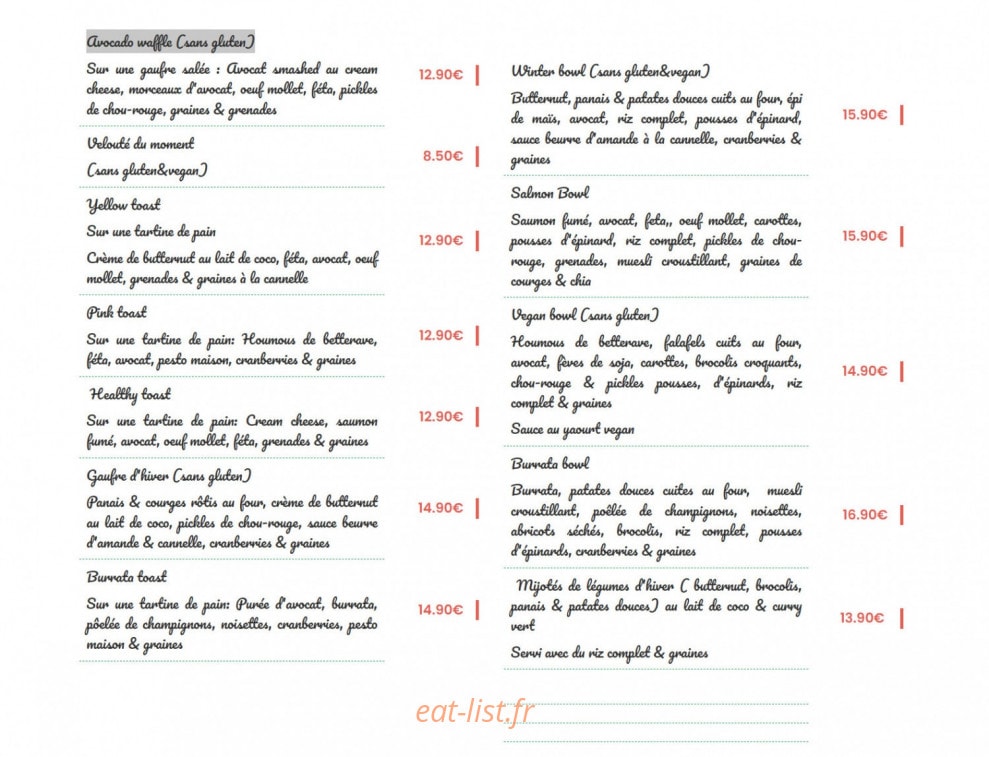 Avocado waffle (sans gluten)
Sur une gaufre salée : Avocat smashed au cream
cheese, morceaux d'avocat, oeuf mollet, féta, pickles
de chou-rouge, graines & grenades
12.90€
Velouté du moment
(sans gluten&vegan)
8.50€
Yellow toast
Sur une tartine de pain
Crème de butternut au lait de coco, féta, avocat, oeuf
mollet, grenades & graines à la cannelle
12.90€
Pink toast
Sur une tartine de pain: Houmous de betterave,
féta, avocat, pesto maison, cranberries & graines
12.90€
Healthy toast
Sur une tartine de pain: Cream cheese, saumon
fumé, avocat, oeuf mollet, féta, grenades & graines
12.90€
Gaufre d'hiver (sans gluten)
Panais & courges rôtis au four, crème de butternut
au lait de coco, pickles de chou-rouge, sauce beurre
d'amande & cannelle, cranberries & graines
14.90€
Burrata toast
Sur une tartine de pain: Purée d'avocat, burrata,
pôelée de champignons, noisettes, cranberries, pesto
maison & graines
14.90€
Winter bowl (sans gluten&vegan)
Butternut, panais & patates douces cuits au four, épi
de maïs, avocat, riz complet, pousses d'épinard,
sauce beurre d'amande à la cannelle, cranberries &
graines
15.90€
Salmon Bowl
Saumon fumé, avocat, feta,, oeuf mollet, carottes,
pousses d'épinard, riz complet, pickles de chou-
rouge, grenades, muesli croustillant, graines de
courges & chia
15.90€
Vegan bowl (sans gluten)
Houmous de betterave, falafels cuits au four,
avocat, fèves de soja, carottes, brocolis croquants,
chou-rouge & pickles pousses, d'épinards, riz
complet & graines
Sauce au yaourt vegan
14.90€
Burrata bowl
Burrata, patates douces cuites au four, muesli
croustillant, poêlée de champignons, noisettes,
abricots séchés, brocolis, riz complet, pousses
d'épinards, cranberries & graines
16.90€
Mijotés de légumes d'hiver ( butternut, brocolis,
panais & patates douces) au lait de coco & curry
vert
Servi avec du riz complet & graines
13.90€
eat-list.fr